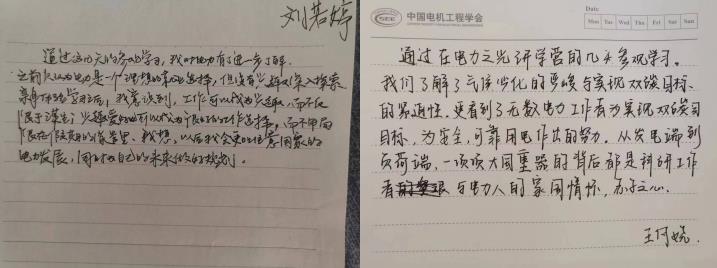 刘若婷
通过这几天的参加学习，我对电力有了进一步了解。
之前只认为电力是一个理想的专业选择，但没有兴趣深入探索
亲身体验学习后，我意识到，工作可以成为兴趣，而不仅
限于谋生；兴趣爱好也可以成为很好的工作选择，而不单局
限在
我想，以后我会更加注意国家的
电力发展，同时对自己的未来做好规划。
中国电机工程学会
CSEE
Date
Mon Tue Wed Thu Fri Sat Sun
通过在电力之光研学营的几天参观学习。
我们了解了气候变化的严峻与实现双碳目标
的紧迫性。更看到了无数电力工作者为实现双碳
目标，为安全，可靠用电作出的努力。从发电端到
负荷端，一项项大国重器的背后都是科研工作
者
与电力人的家国情怀，赤子之心。